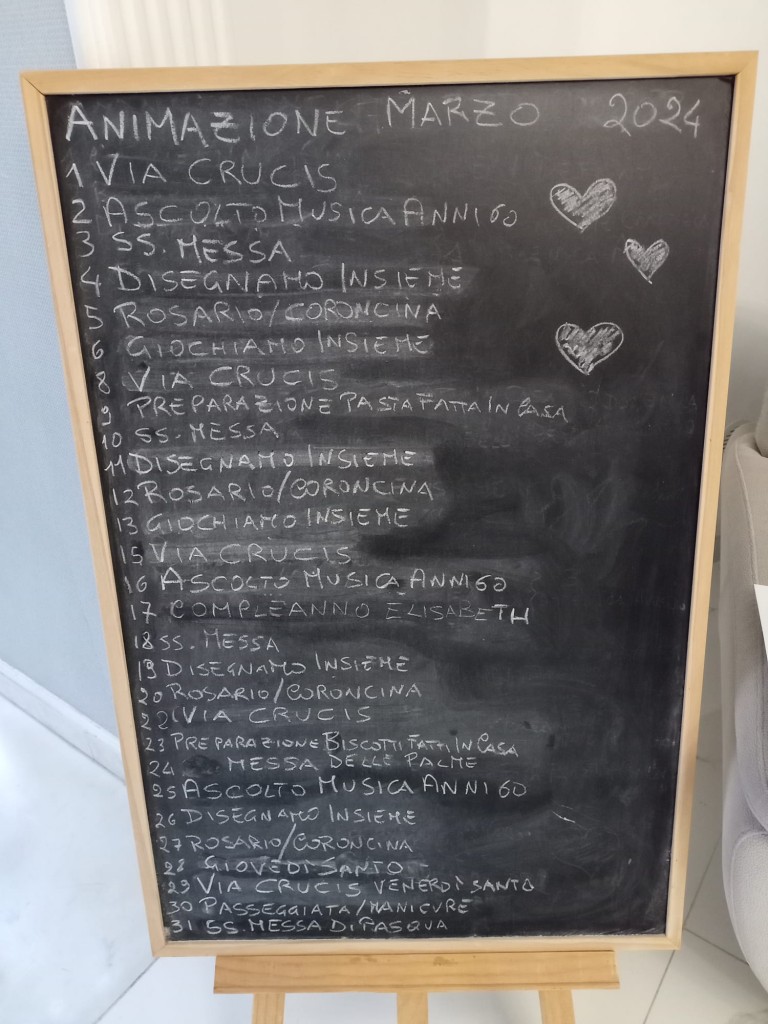 ANIMAZIONE MARZO 2024
1 VIA CRUCIS
2 ASCOLTO MUSICA ANNI 60
3 SS. MESSA
4 DISEGNAMO INSIEME
5 ROSARIO/CORONCINA
6 GIOCHIAMO INSIEME
8 VIA CRUCIS
9 PREPARAZIONE PASTA FATTA IN CASA
10 SS. MESSA
11 DISEGNAMO INSIEME
12 ROSARIO/CORONCINA
13 GIOCHIAMO INSIEME
15 VIA CRUCIS
16 ASCOLTO MUSICA ANNI 60
17 COMPLEANNO ELISABETH
18 SS. MESSA
19 DISEGNAMO INSIEME
20 ROSARIO/CORONCINA
22 VIA CRUCIS
23 PREPARAZIONE BISCOTTI FATTI IN CASA
24 MESSA DELLE PALME
25 ASCOLTO MUSICA ANNI 60
26 DISEGNAMO INSIEME
27 ROSARIO/CORONCINA
28 GIOVEDÌ SANTO
29 VIA CRUCIS VENERDÌ SANTO
30 PASSEGGIATA/MANICURE
31 SS MESSA DI PASQUA